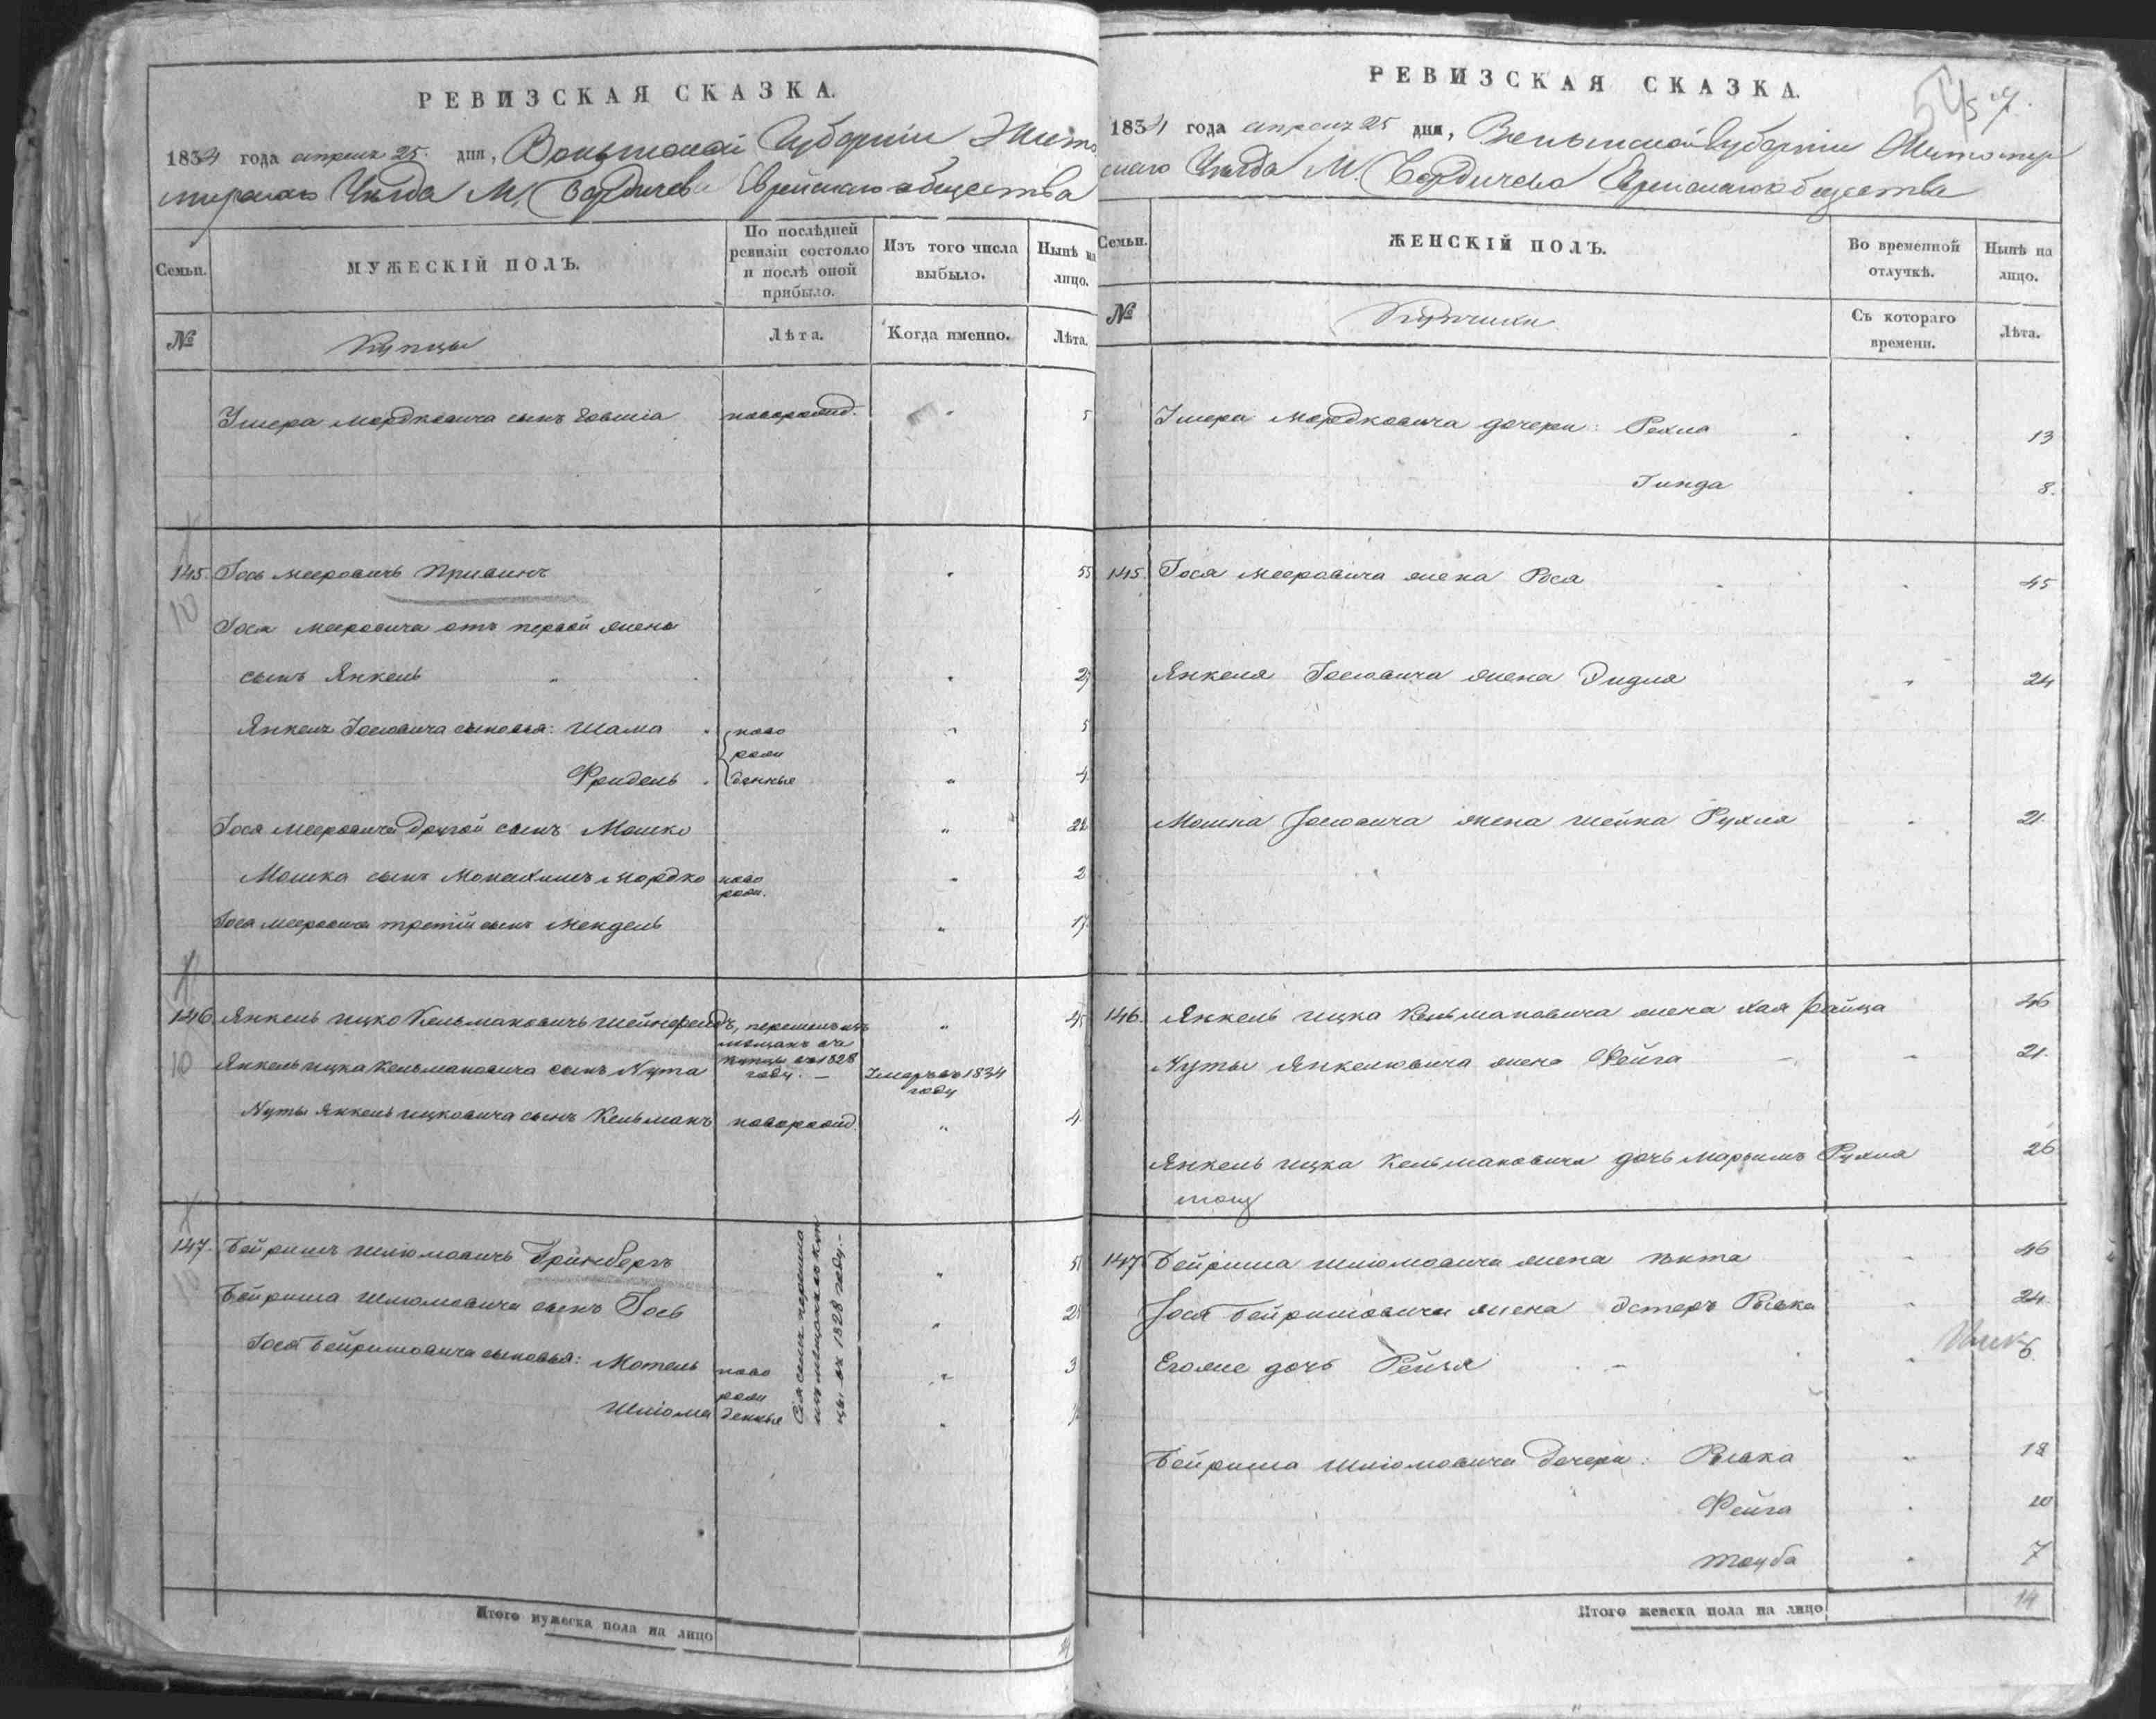 РЕВИЗСКАЯ СКАЗКА.
1834 года апреля 25 дня, Волынской Губерніи Жито
мирскаго Уѣзда М. Бердичева Еврейскаго общества
Семьи.
МУЖЕСКІЙ ПОЛЪ.
По послѣдней
ревизіи состояло
и послѣ оной
прибыло.
Изъ того числа
выбыло.
Нынѣ на
лицо.
№
Купцы
Лѣта.
Когда именно.
Лѣта.
Умера Мордковича сынъ новорожд. 5
145. Іось Мееровичъ 55
10
Іося Мееровича отъ первой жены
сынъ Янкель 27
Янкеля Іосіовича сыновья: Шама ново 5
рож
Фридель денные 4
Іося Мееровича другой сынъ Мошко 22
Мошка сынъ Монахимъ Мордко ново 2
рож.
Іося Мееровича третій сынъ Мендель 17
146 Янкель Ицко Кельмановичъ Шейнфельдъ, перешолъ изъ 45
мещанъ въ
купцы въ 1828
году. —
10 Янкель Ицка Кельмановича сынъ Нута Умеръ въ 1834
году
Нуты Янкель Ицковича сынъ Кельманъ новорожд. 4
147. Бейришъ Шліомовичъ Гринбергъ 51
10
Бейриша Шліомовича сынъ Іось
Іося Бейришовича сыновья: Мотель ново 3
рож
Шліома денные
Сія семья перешла
изъ мещанъ въ куп
цы въ 1828 году. —
Итого мужеска пола на лицо
РЕВИЗСКАЯ СКАЗКА.
54
57.
1834 года апреля 25 дня, Волынской Губерніи Житомир
скаго Уѣзда М. Бердичева Еврейскаго общества
Семьи.
ЖЕНСКІЙ ПОЛЪ.
Во временной
отлучкѣ.
Нынѣ на
лицо.
№
Съ котораго
времени.
Лѣта.
Умера Мордковича дочери: Рехля 13
Гинда 8.
145. Іося Мееровича жена Рося 45
Янкеля Іосіовича жена Эидля 24
Мошка Іосіовича жена Шейна Рухля 21.
146. Янкель Ицка Кельмановича жена Хая Райца 46
Нуты Янкеліовича жена Фейга 21.
Янкель Ицка Кельмановича дочь Марьимъ Рухля 26
147 Бейриша Шліомовича жена Ента 46
Іося Бейришовича жена Эстеръ Рывка 24.
Егоже дочь Рейзя 6.
Бейриша Шліомовича дочери: Рывка 18
Фейга 10
Тауба 7
Итого женска пола на лицо 14